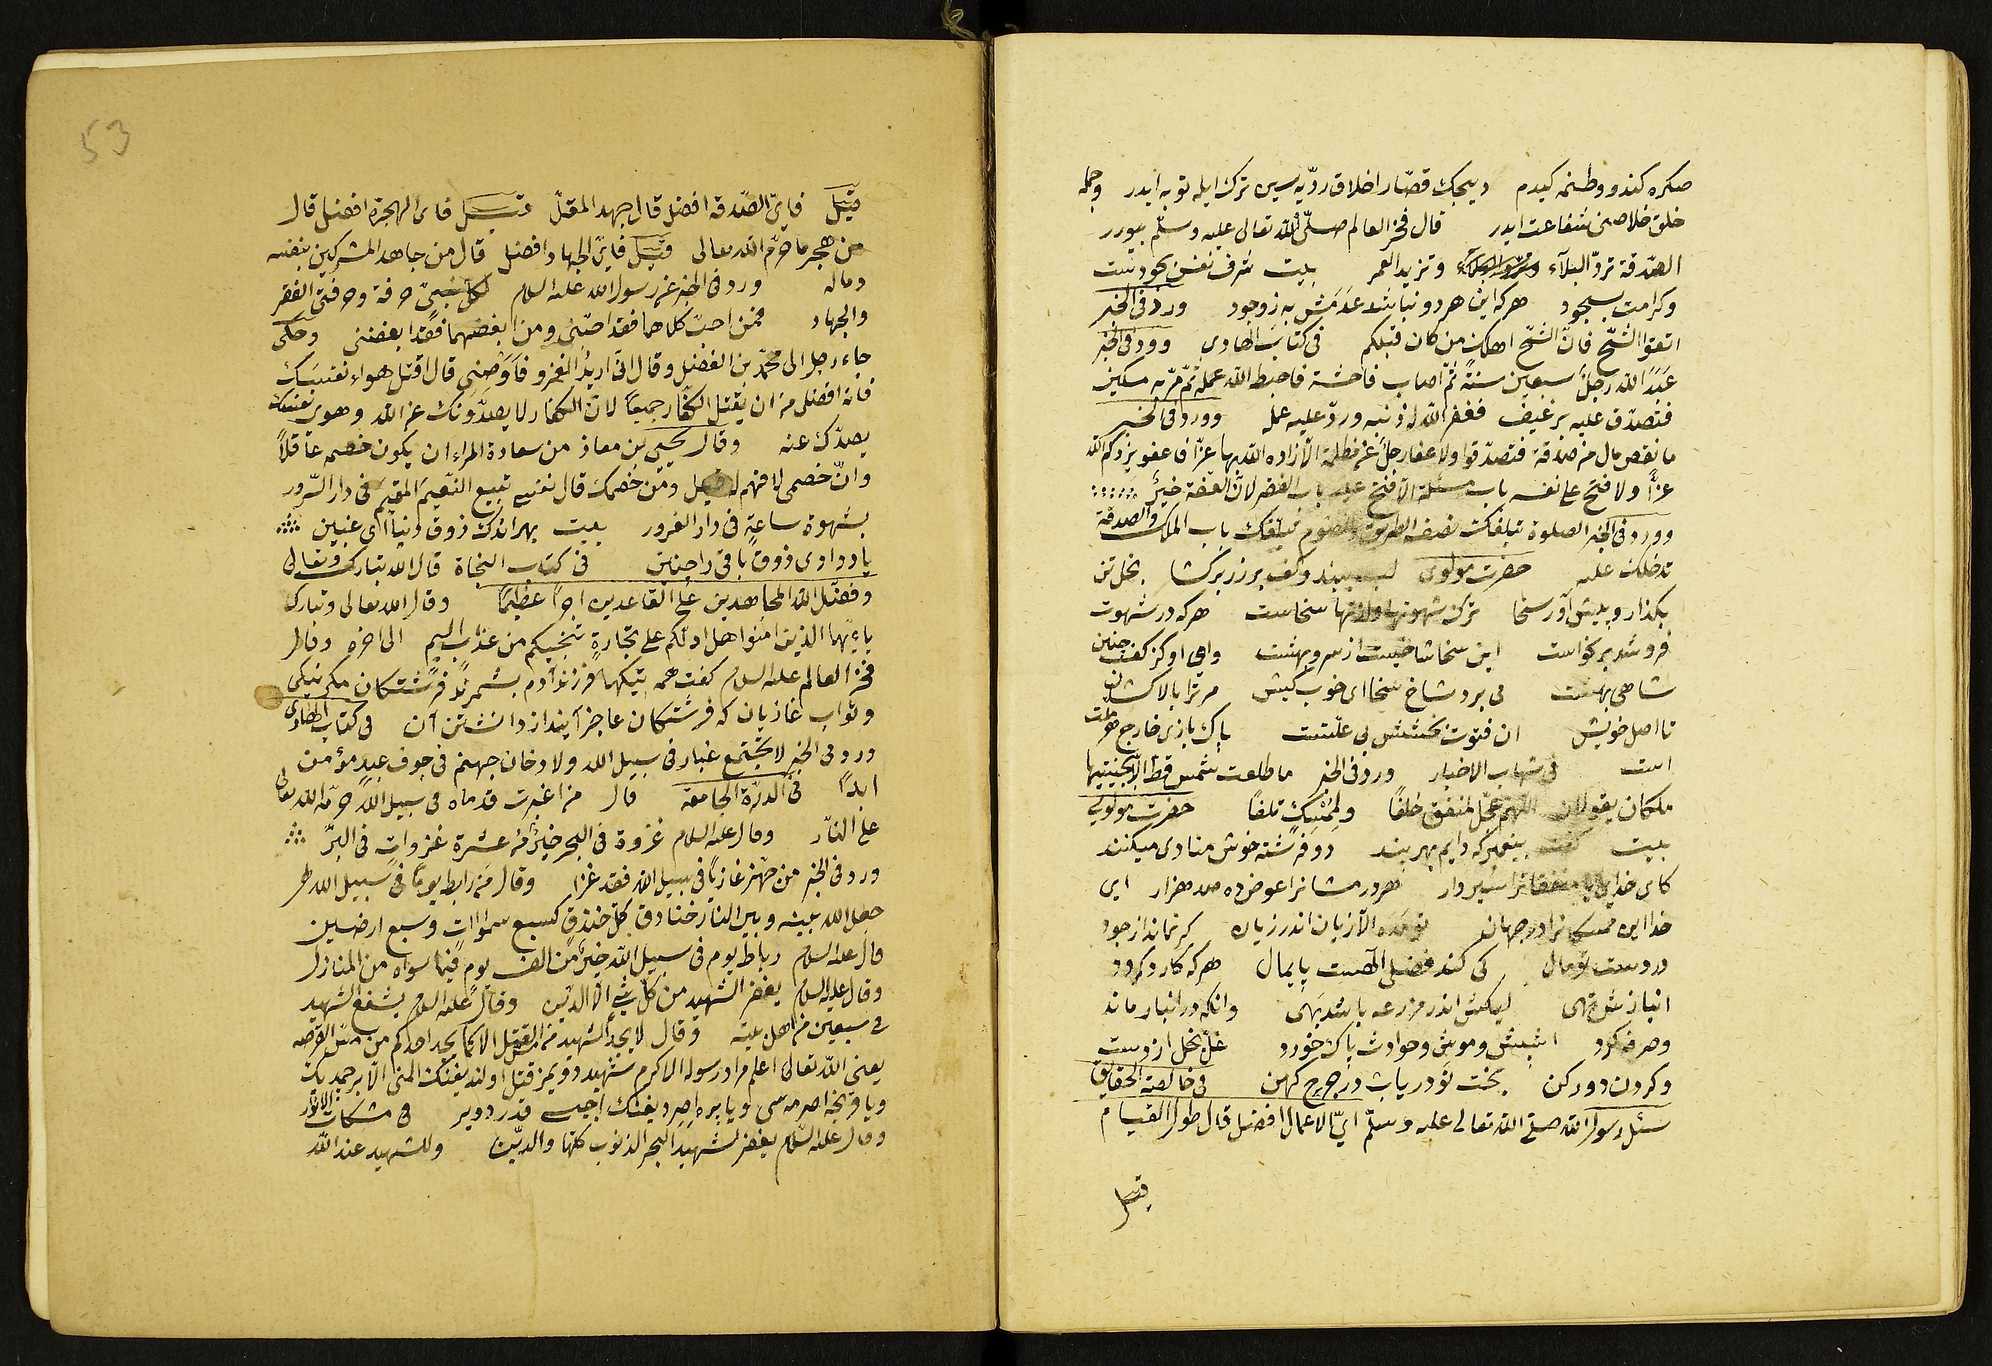 صكره كندو وطنمه كيدم ديجك قصار اخلاق رديه سين ترك ايله توبه ايدر وجمله
خلق خلاصنى شفاعت ايدر قال فخر العالم صلى الله تعالى عليه وسلم بيورر
الصدقة ترد البلاء وتزيد العمر بيت شرف نفس بجودست
وكرامت بسجود هركه اين هردو نباشد عدمش به زوجود ورد فى الخبر
اتقوا الشح فان الشح اهلك من كان قبلكم فى كتاب الهادى وورد فى الخبر
عبد الله رجل سبعين سنة ثم اصاب فاحشة فاحبط الله عمله ثم مر به مسكين
فتصدق عليه برغيف فغفر الله له ذنبه ورد عليه عمله وورد فى الخبر
ما نقص مال من صدقة فتصدقوا ولا عفا رجل عن مظلمة الا زاده الله بها عزا فاعفو يزدكم الله
عزا ولا فتح على نفسه باب مسئلة الا فتح عليه باب الفقر لان العفة خير
وورد فى الخبر الصلوة تبلغك نصف الطريق والصوم يبلغك باب الملك والصدقة
تدخلك عليه حضرت مولوى لب ببند وكف پر زر بر كشا بخل تن
بكذار وپيش آور سخا ترك شهوتها ولذتها سخاست هركه در شهوت
فرو شد بر نخواست اين سخا شاخيست از سرو بهشت واى او كز كف چنين
شاخى بهشت مى برد شاخ سخا اى خوب كيش مر ترا بالا كشان
تا اصل خويش ان فتوت بخشش بى علتست پاك بازى خارج هر ملت
است فى شهاب الاخبار ورد فى الخبر ما طلعت شمس قط الا بجنبيها
ملكان يقولان اللهم عجل لمنفق خلفا ولممسك تلفا حضرت مولوى
بيت كفت پيغمبر كه دايم بهر پند دو فرشته خوش منادى ميكنند
كاى خدايا منفقانرا سير دار هر درمشانرا عوض ده صد هزار اى
خدايا ممسكانرا در جهان تو مده الا زيان اندر زيان كر نماند از جود
در دست تو مال كى كند فضل الهت پايمال هركه كارد كردد
انبارش تهى ليكش اندر مزرعه باشد بهى وانكه در انبار ماند
وصرفه كرد اشپش وموش وحوادث پاك خورد غل بخل از دست
وكردن دور كن بخت نو درياب در چرخ كهن فى خالصة الحقايق
سئل رسول الله صلى الله تعالى عليه وسلم اى الاعمال افضل قال طول القيام
قيل
53
قيل فاى الصدقة افضل قال جهد المقل قيل فاى الهجرة افضل قال
من هجر ما حرم الله تعالى قيل فاى الجهاد افضل قال من جاهد المشركين بنفسه
وماله ورد فى الخبر عن رسول الله عليه السلام لكل نبى حرفة وحرفتى الفقر
والجهاد فمن احب كلاهما فقد احبنى ومن ابغضهما فقد ابغضنى وحكى
جاء رجل الى محمد بن الفضل وقال انى اريد الغزو فاوصنى قال اقتل هواء نفسك
فانه افضل من ان يقتل الكفار جميعا لان الكفار لا يصدونك عن الله وهوى نفسك
يصدك عنه وقال يحيى بن معاذ من سعادة المراء ان يكون خصمه عاقلا
وان خصمى لا فهم له قيل ومن خصمك قال نفسى تبيع النعيم المقيم فى دار السرور
بشهوة ساعة فى دار الغرور بيت بهر اندك ذوق دنيا اى غبين
يا دو ادى ذوق باقى راجنين فى كتاب النجاة قال الله تبارك وتعالى
وفضل الله المجاهدين على القاعدين اجرا عظيما وقال الله تعالى وتبارك
ياءيها الذين امنوا هل ادلكم على تجارة تنجيكم من عذاب اليم الى اخره وقال
فخر العالم عليه السلام كفت همه نيكيها فرزند آدم بشمرند فرشتكان مكر نيكى
وثواب غازيان كه فرشتكان عاجز آيند از دانشتن آن فى كتاب الهادى
ورد فى الخبر لا يجتمع غبار فى سبيل الله ولا دخان جهنم فى جوف عبد مؤمن
ابدا فى الدرة الجامعة قال من اغبرت قدماه فى سبيل الله حرمه الله تعالى
على النار وقال عليه السلام غزوة فى البحر خير من عشرة غزوات فى البر
ورد فى الخبر من جهز غازيا فى سبيل الله فقد غزا وقال من رابط يوما فى سبيل الله
جعل الله بينه وبين النار خنادق كل خندق كسبع سموات وسبع ارضين
قال عليه السلام رباط يوم فى سبيل الله خير من الف يوم فيما سواه من المنازل
وقال عليه السلام يغفر الشهيد من كل شئ الا الدين وقال عليه السلام يشفع الشهيد
فى سبعين من اهل بيته وقال لا يجد الشهيد من القتل الا كما يجد احدكم من مس القرصه
يعنى الله تعالى اعلم مراد رسوله الاكرم شهيد دويمز قتل اولنديغنك المنى الا بر چمديك
ويا قرنجه اصرمه سى ويا بره اصرديغنك اجيسى قدر دوير فى مشكات الانوار
وقال عليه السلام يغفر لشهيد البحر الذنوب كلها والدين وللشهيد عند الله